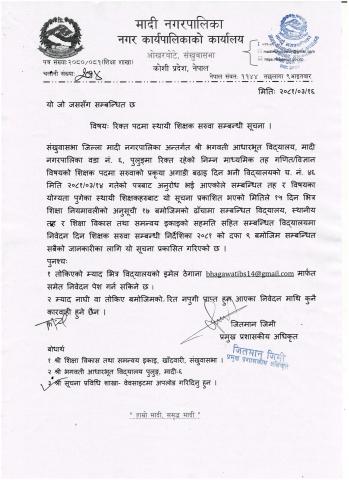 मादी नगरपालिका
नगर कार्यपालिकाको कार्यालय
ओखरबोटे, संखुवासभा
कोशी प्रदेश, नेपाल
पत्र संख्याः२०८०/०८१(शिक्षा शाखा)
चलानी संख्याः
नेपाल संवतः ११४४
मितिः २०८१/०३/१६
यो जो जससँग सम्बन्धित छ
विषयः रिक्त पदमा स्थायी शिक्षक सरुवा सम्बन्धी सूचना ।
संखुवासभा जिल्ला मादी नगरपालिका अन्तर्गत श्री भगवती आधारभूत विद्यालय, मादी
नगरपालिका वडा नं. ६, पुलुङमा रिक्त रहेको निम्न माध्यमिक तह गणित/विज्ञान
विषयको शिक्षक पदमा सरुवाको प्रकृया अगाडी बढाइ दिन भनी विद्यालयको च. नं. ४६
मिति २०८१/०३/१४ गतेको पत्रबाट अनुरोध भई आएकोले सम्बन्धित तह र विषयका
योग्यता पुगेका स्थायी शिक्षकहरुबाट यो सूचना प्रकाशित भएको मितिले १५ दिन भित्र
शिक्षा नियमावलीको अनुसूची १७ बमोजिमको ढाँचामा सम्बन्धित विद्यालय, स्थानीय
तह र शिक्षा विकास तथा समन्वय इकाइको सहमति सहित सम्बन्धित विद्यालयमा
निवेदन दिन शिक्षक सरुवा सम्बन्धी निर्देशिका २०८१ को दफा ९ बमोजिम सम्बन्धित
सबैको जानकारीका लागि यो सूचना प्रकाशित गरिएको छ ।
पुनश्चः
१ तोकिएको म्याद भित्र विद्यालयको इमेल ठेगाना bhagawatibs14@gmail.com मार्फत
समेत निवेदन पेश गर्न सकिने छ ।
२ म्याद नाघी वा तोकिए बमोजिमको रित नपुगी प्राप्त हुन आएका निवेदन माथि कुनै
कारवाही हुने छैन ।
जितमान जिमी
प्रमुख प्रशासकीय अधिकृत
जितमान जिमी
प्रमुख प्रशासकीय अधिकृत
बोधार्थ
१ श्री शिक्षा विकास तथा समन्वय इकाइ, खाँदबारी, संखुवासभा ।
२ श्री भगवती आधारभूत विद्यालय पुलुङ, मादी-६
३ श्री सूचना प्रविधि शाखा- वेवसाइटमा अपलोड गरिदिनु हुन ।
" हाम्रो मादी, समृद्ध मादी "